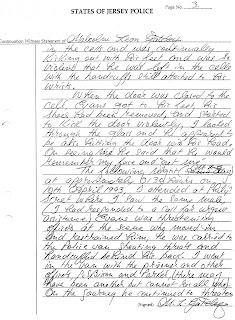 STATES OF JERSEY POLICE
Page No 3.
Continuation Witness Statement of Malcolm Leon
in the cell and was continually
kicking out with his feet and was so
violent that he was left in the cells
with the handcuffs still attached to his
wrists.
When the door was closed to the
cell Evans got to his feet his
shoes had been removed, and started
to kick the door violently, I looked
through the glass and he appeared to
be also hitting the door with his head.
On seeing me he said that he would
remember my face and get me.
The following night
at approximately
19th April 1993, I attended at Philip
Street where I saw the same male,
I had responded to a call for urgent
assistance. Evans was threatening
officers at the scene who moved in
and restrained him, he was carried to
the Police van shouting threats and
handcuffed behind his back. I went
in the van with the prisoner and other
officers, there may
have been another but cannot recall who.
On the journey he continued to threaten
(Signed)